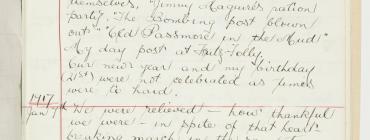 themselves, "Jimmy Maguire's ration
party". "The Bombing post blown
out" "Old Passmore in the Mud"
My day post at Fritz Folly.
Our new year and my birthday
(21st) were not celebrated as times
were to hard.
1917
Jan 9th We were relieved - how thankful
we were - in spite of that heart-
breaking march